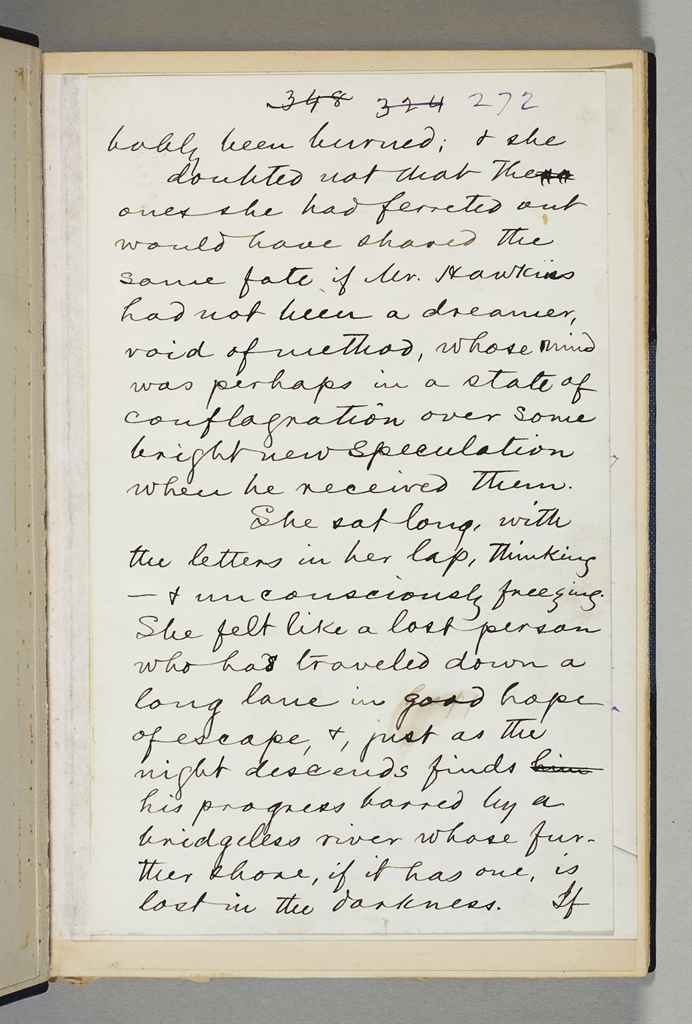 348 324 272
bably been burned; & she
doubted not that the
ones she had ferreted out
would have shared the
same fate if Mr. Hawkins
had not been a dreamer,
void of method, whose mind
was perhaps in a state of
conflagration over some
bright new speculation
when he received them.
She sat long, with
the letters in her lap, thinking
— & unconsciously freezing.
She felt like a lost person
who has traveled down a
long lane in good hope
of escape, &, just as the
night descends finds him
his progress barred by a
bridgeless river whose fur-
ther shore, if it has one, is
lost in the darkness. If